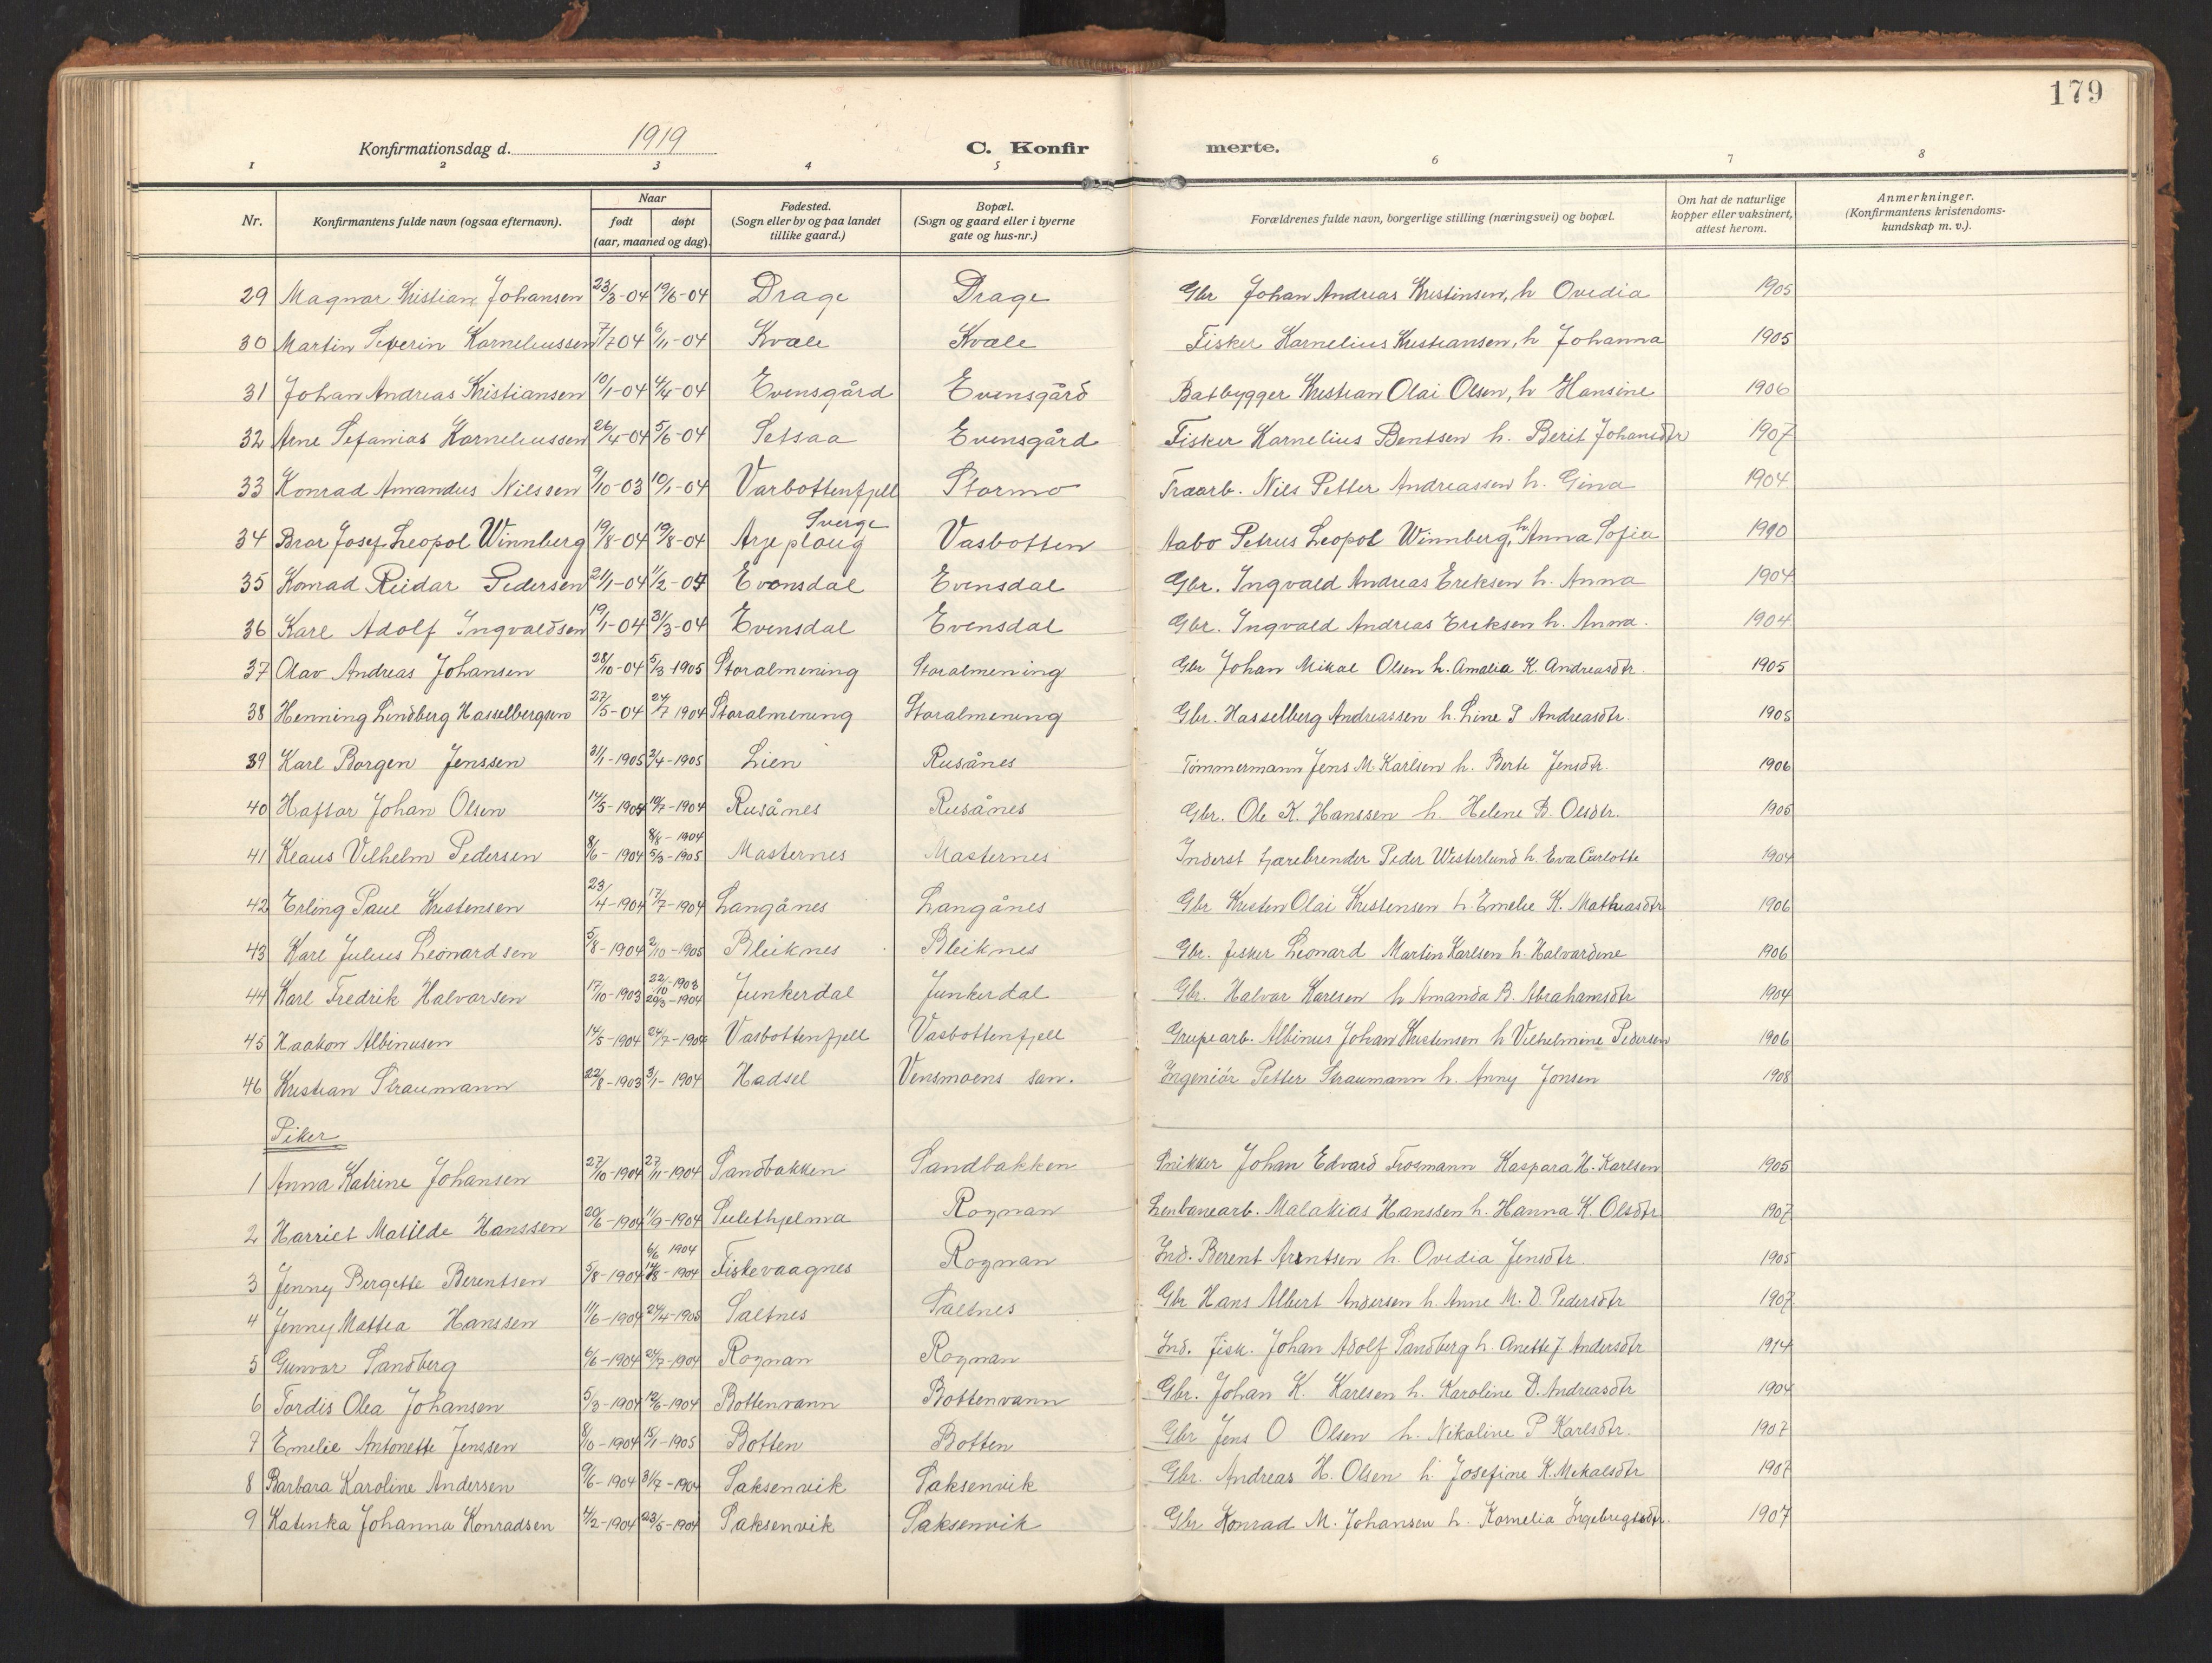 179
Konfirmationsdag d. 1919 C. Konfirmerte.
1 2 3 4 5 6 7 8
Nr. Konfirmantens fulde navn (ogsaa efternavn). Naar født døpt (aar, maaned og dag). Fødested. (Sogn eller by og paa landet tillike gaard.) Bopæl. (Sogn og gaard eller i byerne gate og hus-nr.) Forældrenes fulde navn, borgerlige stilling (næringsvei) og bopæl. Om hat de naturlige kopper eller vaksinert, attest herom. Anmerkninger. (Konfirmantens kristendoms-kundskap m. v.).
29 Magnar Kristian Johansen 23/3-04 19/6-04 Drage Drage Gbr Johan Andreas Kristinsen, h Ovedia 1905
30 Martin Severin Karneliussen 7/7 04 6/11-04 Kvæle Kvæle Fisker Karnelius Kristiansen, h Johanna 1905
31 Johan Andreas Kristiansen 10/1-04 4/4-04 Evensgård Evensgård Batbygger Kristian Olai Olsen, h Hansine 1906
32 Arne Sefanias Karneliussen 26/4-04 5/6-04 Setsaa Evensgård Fisker Karnelius Bentsen h. Berit Johansdtr 1907
33 Konrad Amandus Nilssen 9/10-03 10/1-04 Varbottenfjell Stormo Traarb. Nils Petter Andreassen h. Gina 1904
34 Bror Josef Leopol Winnberg 19/8-04 19/8-04 Arjeploug Sverge Vasbotten Aabo Petrus Leopol Winnberg, h. Anna Sofia 1910
35 Konrad Reidar Pedersen 21/1-04 11/2-04 Evensdal Evensdal Gbr. Ingvald Andreas Ereksen h. Anna 1904
36 Karl Adolf Ingvaldsen 19/1-04 31/3-04 Evensdal Evensdal Gbr. Ingvald Andreas Ereksen h. Anna. 1904
37 Olav Andreas Johansen 28/10-04 5/3 1905 Storalmening Storalmening Gbr Johan Mikal Olsen h. Amalia K. Andreasdtr. 1905
38 Henning Lindberg Hasselbergsen 27/5-04 24/7 1904 Storalmening Storalmening Gbr. Hasselberg Andreassen h. Line P Andreasdtr. 1905
39 Karl Borgen Jenssen 31/1-1905 2/4-1905 Lien Rusånes Tømmermann Jens M. Karlsen h. Berte Jensdtr. 1906
40 Haftor Johan Olsen 14/5-1904 10/7-1904 Rusånes Rusånes Gbr. Ole K. Hanssen h. Helene B. Olsdtr. 1905
41 Klaus Vilhelm Pedersen 8/6-1904 8/8-1904 5/3-1905 Masternes Masternes Inderst tjærebrender Peder Westerlund h. Eva Carlotte 1904
42 Erling Paul Kristensen 23/4-1904 17/7-1904 Langånes Langånes Gbr Kristen Olai Kristensen h. Emelie K. Mathiasdtr 1906
43 Karl Julius Leonardsen 5/8-1904 2/10-1905 Bleiknes Bleiknes Gbr. fisker Leonard Martin Karlsen h. Halvardine 1906
44 Karl Fredrik Halvarsen 17/10-1903 22/10-1903 20/3-1904 Junkerdal Junkerdal Gbr. Halvar Karlsen h Amanda B. Abrahamsdtr 1904
45 Haakon Albinusen 14/5-1904 24/7-1904 Vasbottenfjell Vasbottenfjell Grupearb. Albinus Johan Kristensen h Vilhelmine Pedersen 1906
46 Kristian Straumann 22/8-1903 3/1-1904 Hadsel Vensmoens san. Ingeniór Petter Straumann h. Anny Jonsen 1908
Piker
1 Anna Katrine Johansen 27/10-1904 27/11-1904 Sandbakken Sandbakken Snikker Johan Edvard Frosmann Kaspara H. Karlsen 1905
2 Harriet Matilde Hanssen 20/6-1904 11/9-1904 Sulithjelma Rognan Linbanearb. Malakias Hanssen h. Hanna K. Olsdtr 1907
3 Jenny Bergette Berentsen 5/8-1904 6/6 1904 14/8-1904 Fiskevaagnes Rognan Ind. Berent Arentsen h. Ovedia Jensdtr. 1905
4 Jenny Mattea Hanssen 11/6-1904 24/4-1905 Saltnes Saltnes Gbr Hans Albert Andersen h. Anne M. D. Pedersdtr 1907
5 Gunvor Sandberg 6/6-1904 24/7-1904 Rognan Rognan Ind. fisk. Johan Adolf Sandberg h. Anette J. Andersdtr 1914
6 Tordis Olea Johansen 5/3-1904 12/6-1904 Bottenvann Bottenvann Gbr. Johan K. Karlsen h. Karoline D. Andreasdtr 1904
7 Emelie Antonette Jenssen 8/10-1904 15/1-1905 Botten Botten Gbr Jens O Olsen h. Nikoline P Karlsdtr. 1907
8 Barbara Karoline Andersen 9/6-1904 31/7-1904 Saksenvik Saksenvik Gbr. Andreas H. Olsen h. Josefine K. Mikalsdtr 1907
9 Katinka Johanna Konradsen 4/2-1904 23/5-1904 Saksenvik Saksenvik Gbr Konrad M. Johansen h. Kornelia Ingebregtsdtr. 1907